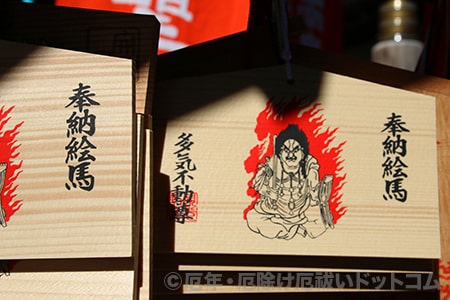 奉納絵馬
奉納絵馬
多気不動尊
©厄年・厄除け厄祓いドットコム